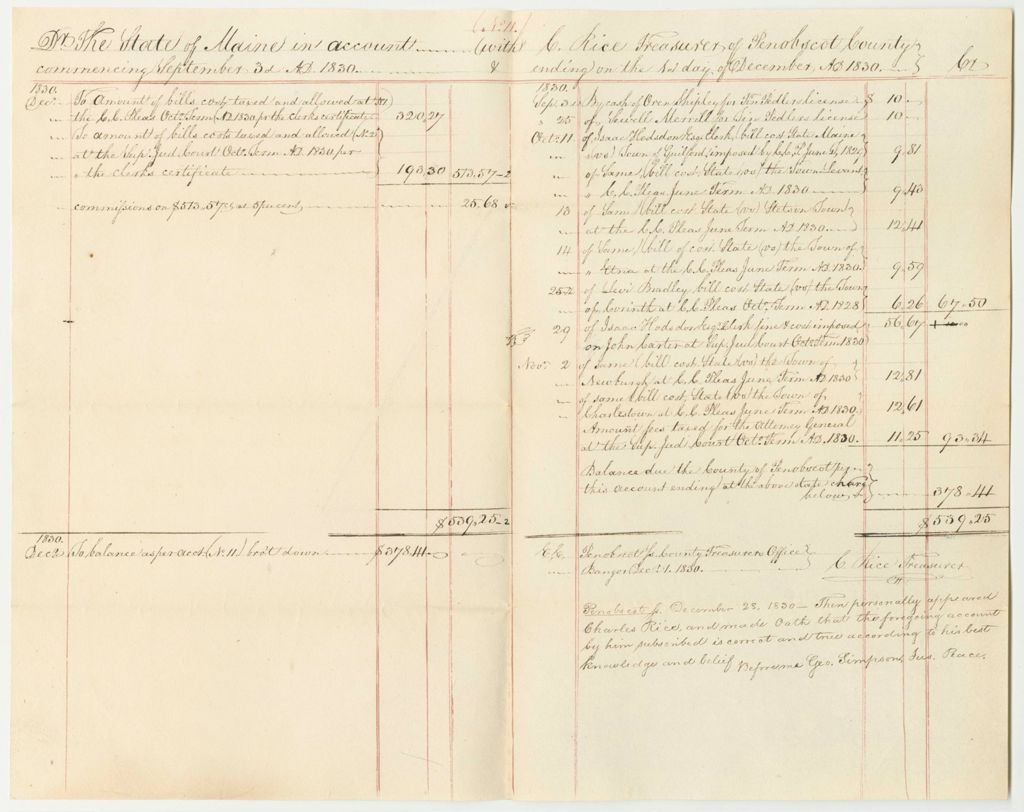 (No. 11.)
Dr. The State of Maine in account (with
commencing September 3d AD. 1830. &
1830.
Decr. To Amount of bills cost taxed and allowed at
the C.C. Pleas Octr. Term AD 1830 pr the clerks certificate 320,27
To amount of bills costs taxed and allowed (No. 2
at the Sup. Jud. Court Octr. Term AD. 1830 per
the clerks certificate 193,30 513,57-2
commissions on $513.57 cts at 5 pr cent, 25,68
$539,25-2
1830.
Dec 2 To balance as per acct. (No. 11) bro't down $378,41
C. Rice Treasurer of Penobscot County
ending on the 1st day of December, AD. 1830. Cr.
1830.
Sep. 3d By cash of Oren Shipley for Tin Pedlers license $ 10
" 25 of Sewell Merrill for Tin Pedlers license 10
Oct. 11 of Isaac Hodsdon Esq. Clerk, bill cost State Maine
(vs) Town of Guilford, imposed by C.C.P. June T. 1829 9,81
of Same, (bill cost, State (vs) the Town Levant
C.C. Pleas June Term AD. 1830 9,43
13 of Same (bill cost State (vs) Stetson Town
at the C.C. Pleas June Term AD. 1830 12,41
14 of Same, (bill of cost State (vs) the Town of
" Etna at the C.C. Pleas June Term AD. 1830. 9,59
25 of Levi Bradley bill cost State (vs) the Town
of Corinth at C.C. Pleas Octr. Term AD 1828 6,26 67-50
29 of Isaac Hodsdon Esq. Clerk fine & cost imposed 56,67
on John Carter at Sup. Jud. Court Octr. Term 1830
Nov. 2 of same (bill cost State (vs) the Town of
Newburgh at C.C. Pleas June Term AD 1830 12,81
of same (bill cost, State (vs) the Town of
Charlestown at C.C. Pleas June Term AD. 1830. 12,61
Amount fees taxed for the Attorney General
at the Sup. Jud. Court Octr. Term AD. 1830. 11,25 93-34
Balance due the County of Penobscot per
this account ending at the above date
below, 378-41
$539,25
E.E. Penobscot ss. County Treasurers Office
Bangor Decr. 1. 1830.
C. Rice Treasurer
Penobscot ss. December 23, 1830 — Then personally appeared
Charles Rice, and made Oath that the foregoing account
by him subscribed is correct and true according to his best
knowledge and belief Before me Geo. Simpson, Jus. Peace.